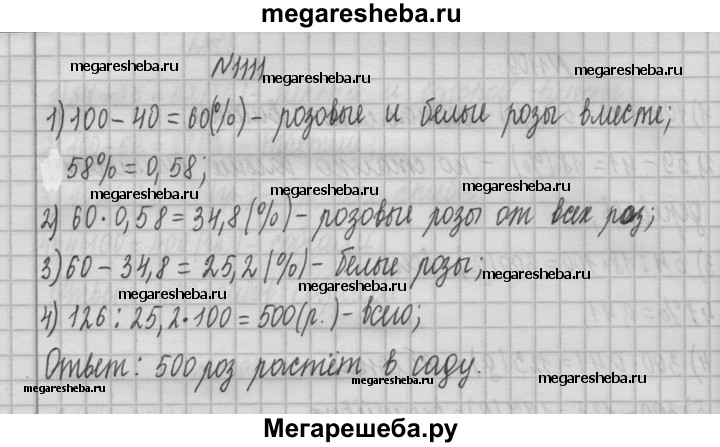 megaresheba.ru
megaresheba.ru megaresheba.ru
N1111
1) 100 - 40 = 60(%) - розовые и белые розы вместе;
megaresheba.ru
58% = 0,58;
megaresheba.ru megaresheba.ru
2) 60 · 0,58 = 34,8(%) - розовые розы от всех роз;
megaresheba.ru
3) 60 - 34,8 = 25,2(%) - белые розы;
megaresheba.ru megaresheba.ru
4) 126 : 25,2 · 100 = 500(р.) - всего;
megaresheba.ru
Ответ: 500 роз растёт в саду.
megaresheba.ru megaresheba.ru
Мегарешеба.ру